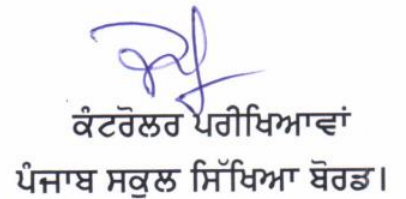 ਕੰਟਰੋਲਰ ਪਰੀਖਿਆਵਾਂ
ਪੰਜਾਬ ਸਕੂਲ ਸਿੱਖਿਆ ਬੋਰਡ।